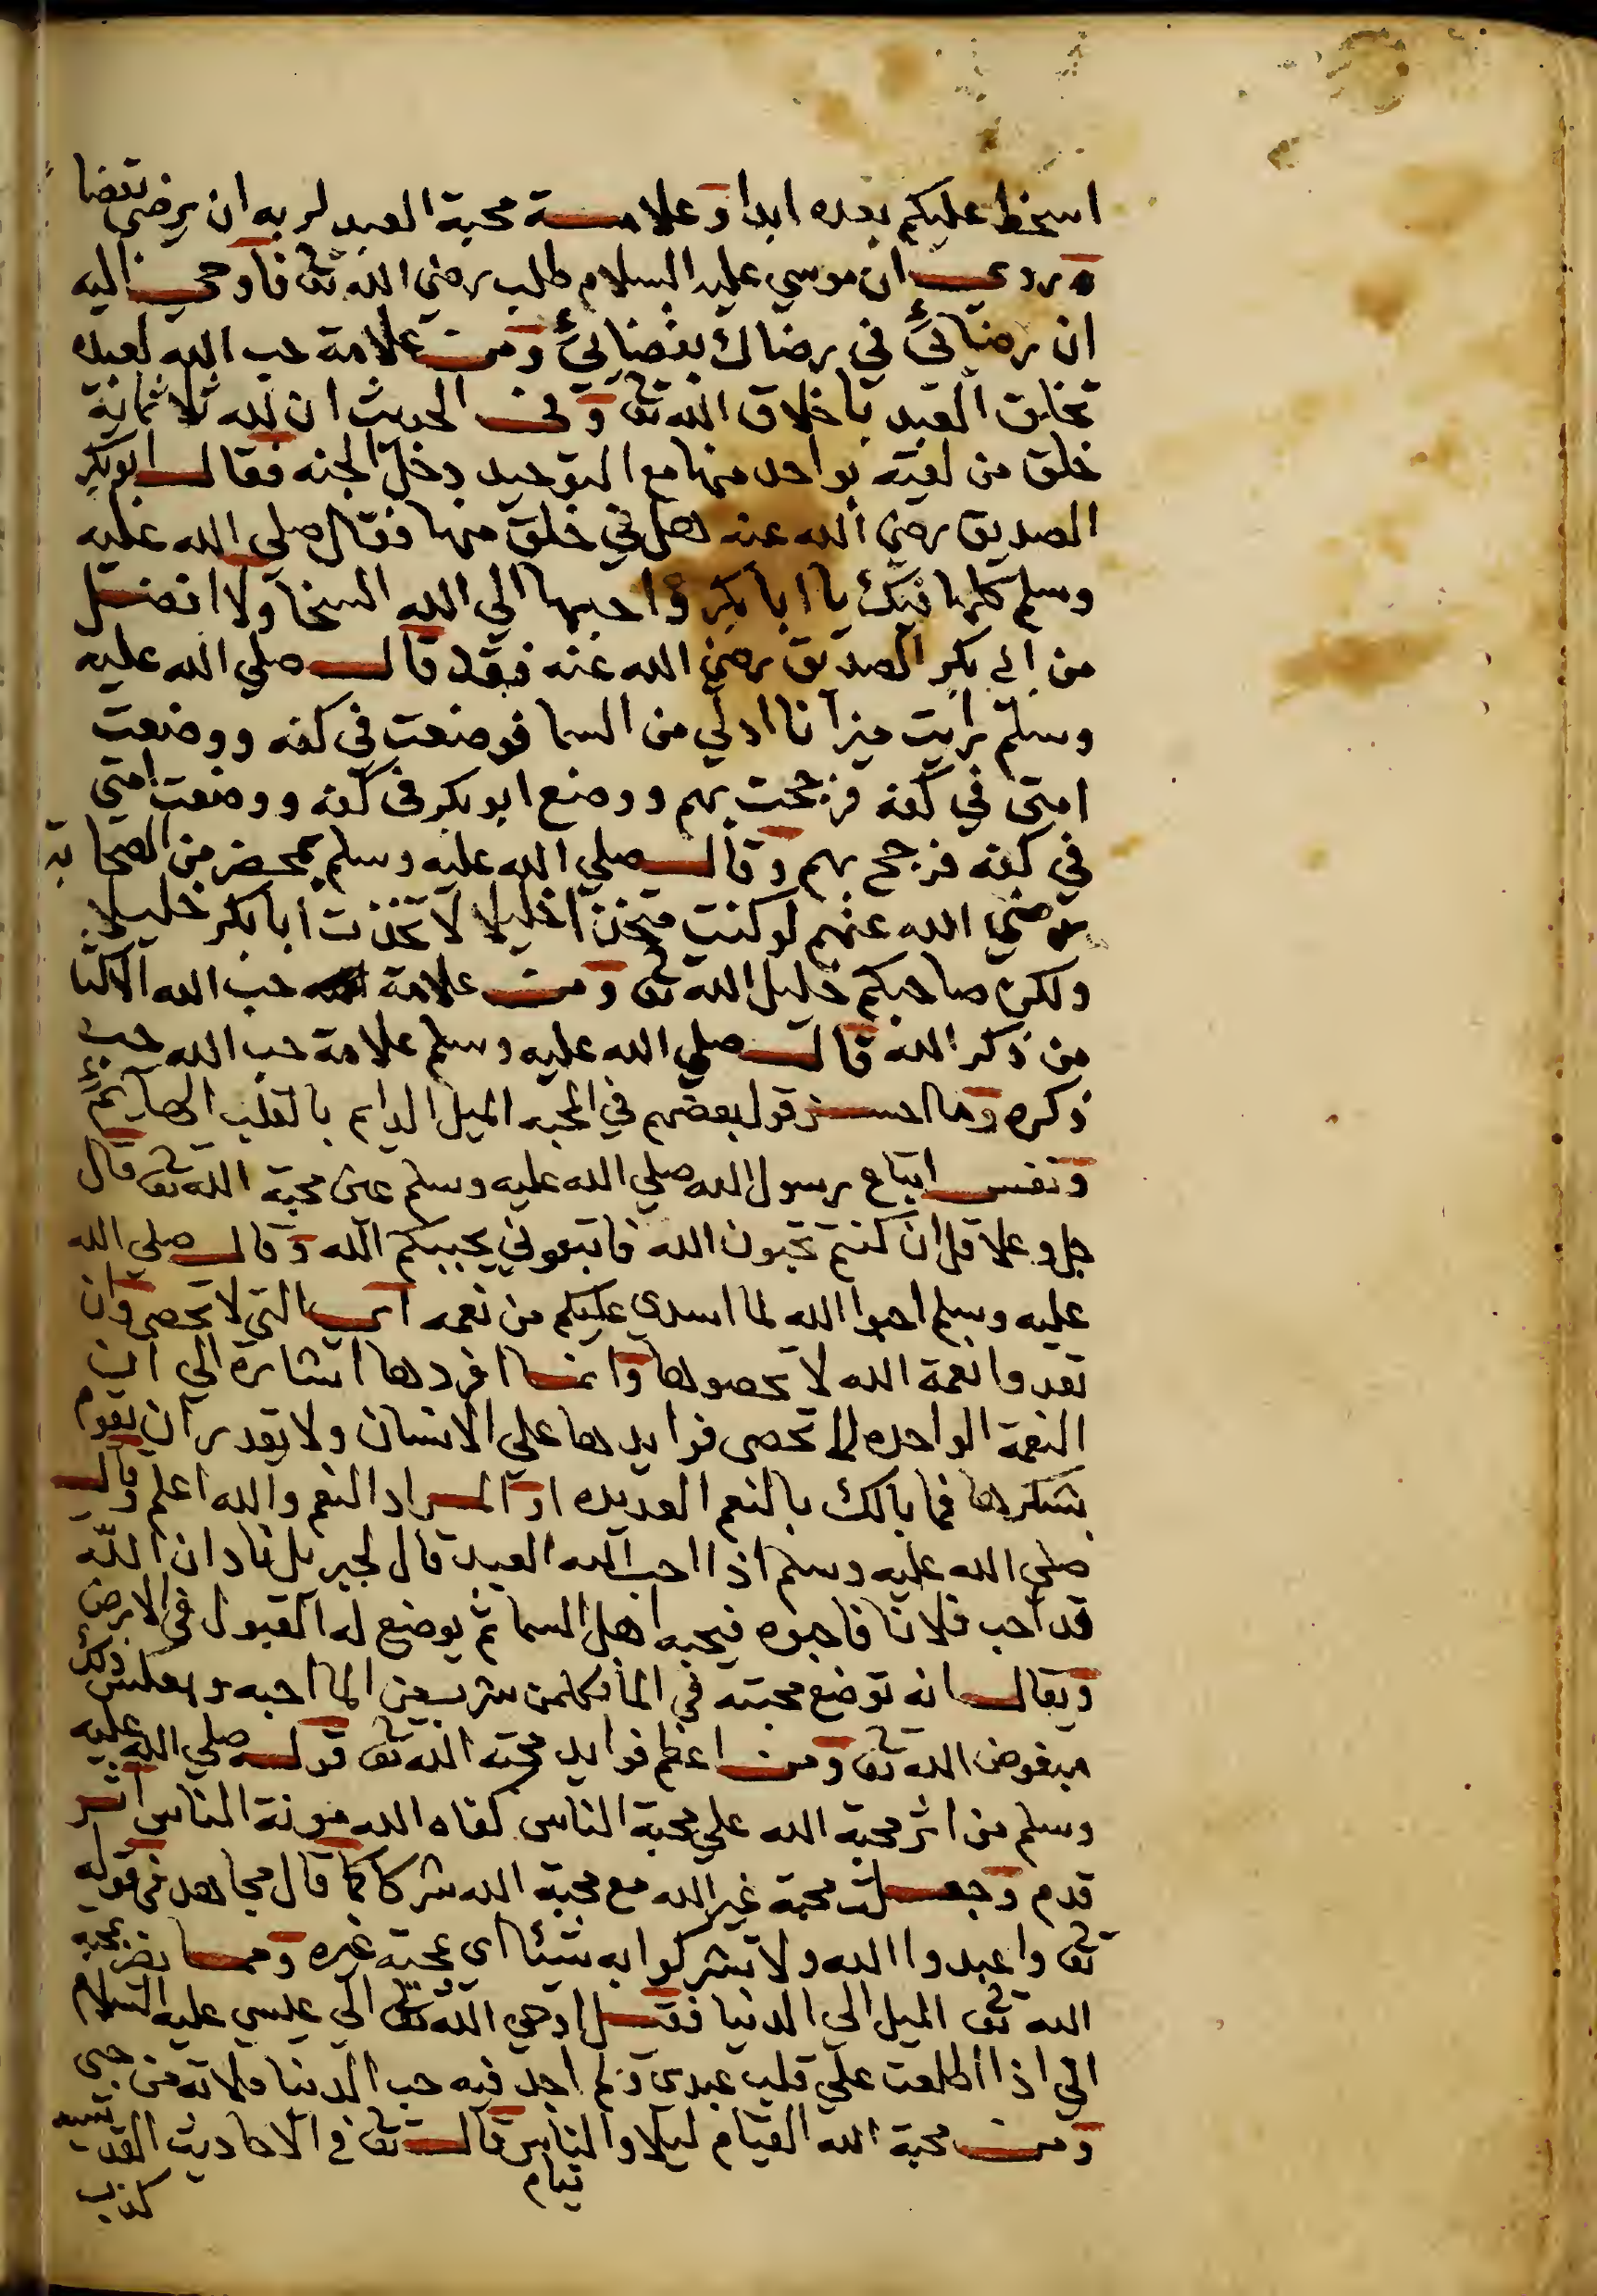 اسخط عليكم بعده ابدا وعلامة محبة العبد لربه ان يرضى بقضا
ه وروي ان موسي عليه السلام طلب رضي الله تع فاوحي اليه
ان رضائي في رضاك بقضائي ومن علامة حب الله لعبده
تخلق العبد باخلاق الله تع وفي الحديث ان لله ثلاثمائة
خلق من لقيه بواحد منها مع التوحيد دخل الجنه فقال ابو بكر
الصديق رضي الله عنه هل في خلق منها فقال صلي الله عليه
وسلم كلها فيك يا ابا بكر واحبها الي الله السخا ولا افضل
من ابي بكر الصديق رضي الله عنه فقد قال صلي الله عليه
وسلم رايت ميزانا ادلي من السما فوضعت في كفه ووضعت
امتي في كفه فرجحت بهم ووضع ابو بكر في كفه ووضعت امتي
في كفه فرجح بهم وقال صلي الله عليه وسلم بمحضر من الصحابة
رضي الله عنهم لو كنت متخذا خليلا لاتخذت ابا بكر خليلا
ولكن صاحبكم خليل الله تع ومن علامة حب الله الاكثا
من ذكر الله قال صلي الله عليه وسلم علامة حب الله حب
ذكره وما احسن قول بعضهم في المحبه الميل الدايم بالقلب الهايم
ونفس اتباع رسول الله صلي الله عليه وسلم عين محبة الله تع قال
جل وعلا قل ان كنتم تحبون الله فاتبعوني يحببكم الله وقال صلي الله
عليه وسلم احبوا الله لما اسدي عليكم من نعمه اي التي لا تحصي وان
تعدوا نعمة الله لا تحصوها وانما افردها اشارة الي ان
النعمة الواحده لا تحصى فوايدها علي الانسان ولا يقدر ان يقوم
بشكرها فما بالك بالنعم العديده او المراد النعم والله اعلم وقال
صلي الله عليه وسلم اذا احب الله العبد قال لجبريل ناد ان الله
قد احب فلانا فاحبوه فيحبه اهل السما ثم يوضع له القبول في الارض
ويقال انه توضع محبته في الما فكلمن شرب من الما احبه وبعكس ذلك
مبغوض الله تع ومن اعظم فوايد محبة الله تع قوله صلي الله عليه
وسلم من اثر محبة الله علي محبة الناس كفاه الله مونة الناس اثر
قدم وجعلت محبة غير الله مع محبة الله شركا كما قال مجاهد في قوله
تع واعبدوا الله ولا تشركوا به شيئا اي محبة غيره ومما يضر بمحبة
الله تع الميل الي الدنيا فقيل اوحي الله تع الي عيسي عليه السلام
اني اذا اطلعت علي قلب عبدي ولم اجد فيه حب الدنيا ملاته من حبي
ومن محبة الله القيام ليلا والناس نيام قال تع في الاحاديث القدسيه
كذب